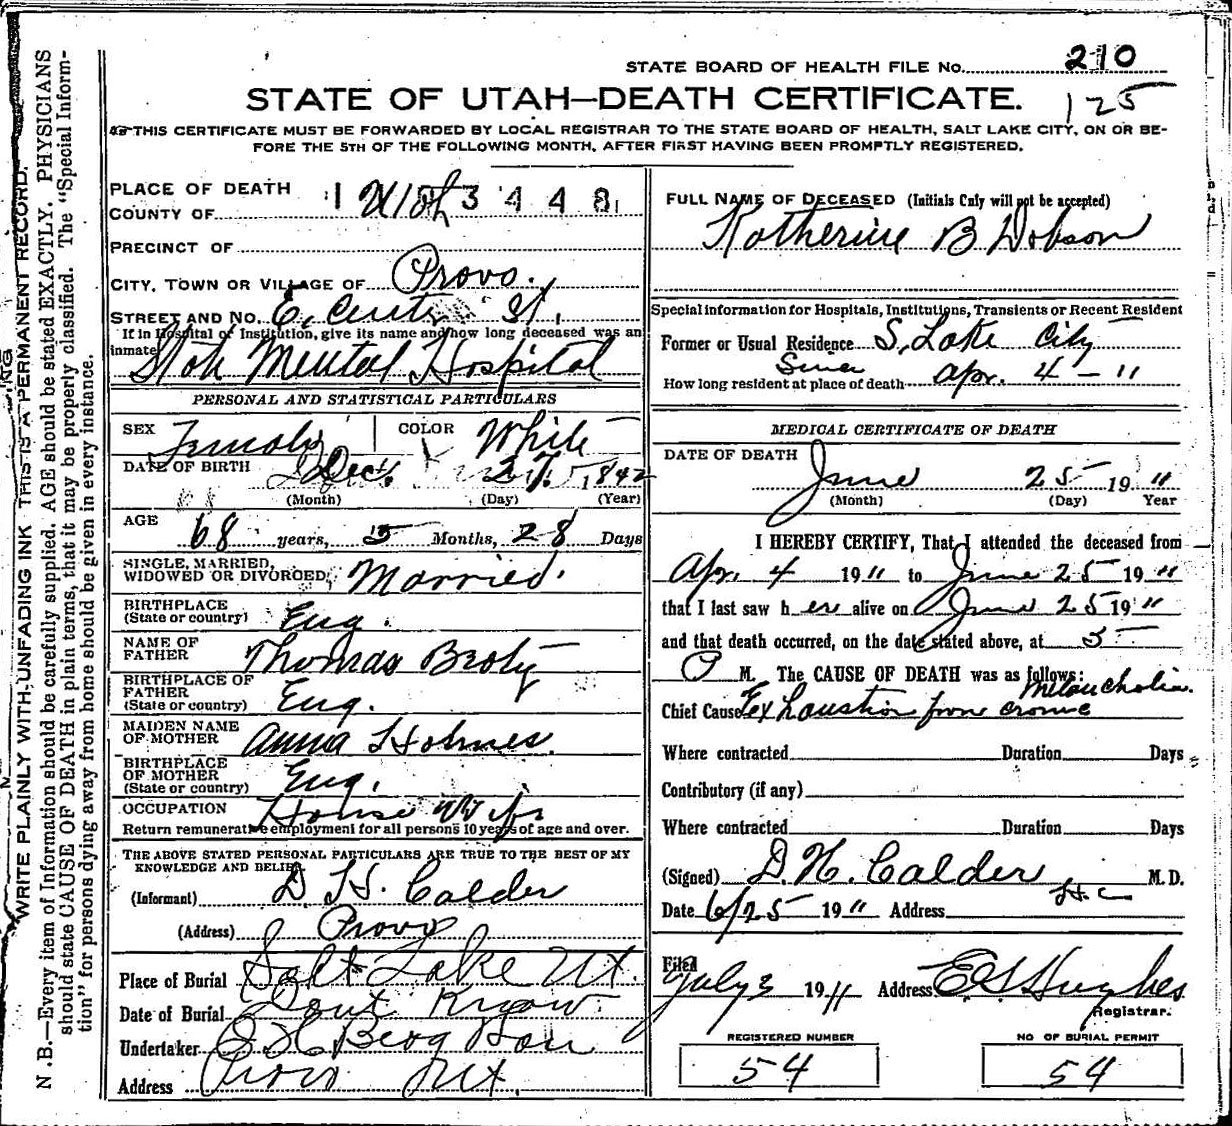 STATE BOARD OF HEALTH FILE No. 210
STATE OF UTAH—DEATH CERTIFICATE. 125
THIS CERTIFICATE MUST BE FORWARDED BY LOCAL REGISTRAR TO THE STATE BOARD OF HEALTH, SALT LAKE CITY, ON OR BE-
FORE THE 5TH OF THE FOLLOWING MONTH, AFTER FIRST HAVING BEEN PROMPTLY REGISTERED.
WRITE PLAINLY WITH UNFADING INK THIS IS A PERMANENT RECORD.
N.B.—Every item of Information should be carefully supplied. AGE should be stated EXACTLY. PHYSICIANS
should state CAUSE OF DEATH in plain terms, that it may be properly classified. The "Special Inform-
tion" for persons dying away from home should be given in every instance.
PLACE OF DEATH
COUNTY OF Utah 3 4 4 8
PRECINCT OF
CITY, TOWN OR VILLAGE OF Provo.
STREET AND No. E. Center St.
If in Hospital of Institution, give its name and how long deceased was an
inmate Mental Hospital
PERSONAL AND STATISTICAL PARTICULARS
SEX Female COLOR White
DATE OF BIRTH Dec. 27 1842
(Month) (Day) (Year)
AGE 68 years, 5 Months, 28 Days
SINGLE, MARRIED,
WIDOWED OR DIVORCED, Married.
BIRTHPLACE
(State or country) Eng.
NAME OF
FATHER Thomas
BIRTHPLACE OF
FATHER
(State or country) Eng.
MAIDEN NAME
OF MOTHER Anna Holmes.
BIRTHPLACE
OF MOTHER
(State or country) Eng.
OCCUPATION House Wife
Return remunerative employment for all persons 10 years of age and over.
THE ABOVE STATED PERSONAL PARTICULARS ARE TRUE TO THE BEST OF MY
KNOWLEDGE AND BELIEF.
(Informant) D. H. Calder
(Address) Provo
Place of Burial Salt Lake Ut.
Date of Burial Dont Know.
Undertaker Berg
Address Provo Ut.
FULL NAME OF DECEASED (Initials Only will not be accepted)
Katherine B Dobson
Special information for Hospitals, Institutions, Transients or Recent Resident
Former or Usual Residence S. Lake City
How long resident at place of death Since Apr. 4 - 11
MEDICAL CERTIFICATE OF DEATH
DATE OF DEATH
June 25 19 11
(Month) (Day) Year
I HEREBY CERTIFY, That I attended the deceased from
Apr. 4 19 11 to June 25 19 11
that I last saw h er alive on June 25 19 11
and that death occurred, on the date stated above, at 5
P M. The CAUSE OF DEATH was as follows:
Chief Cause Exhaustion from cronic melancholia.
Where contracted Duration Days
Contributory (if any)
Where contracted Duration Days
(Signed) D. H. Calder M. D.
Date 6/25 19 11 Address
Filed
July 3 1911 Address E S Hughes
Registrar.
REGISTERED NUMBER NO OF BURIAL PERMIT
54 54